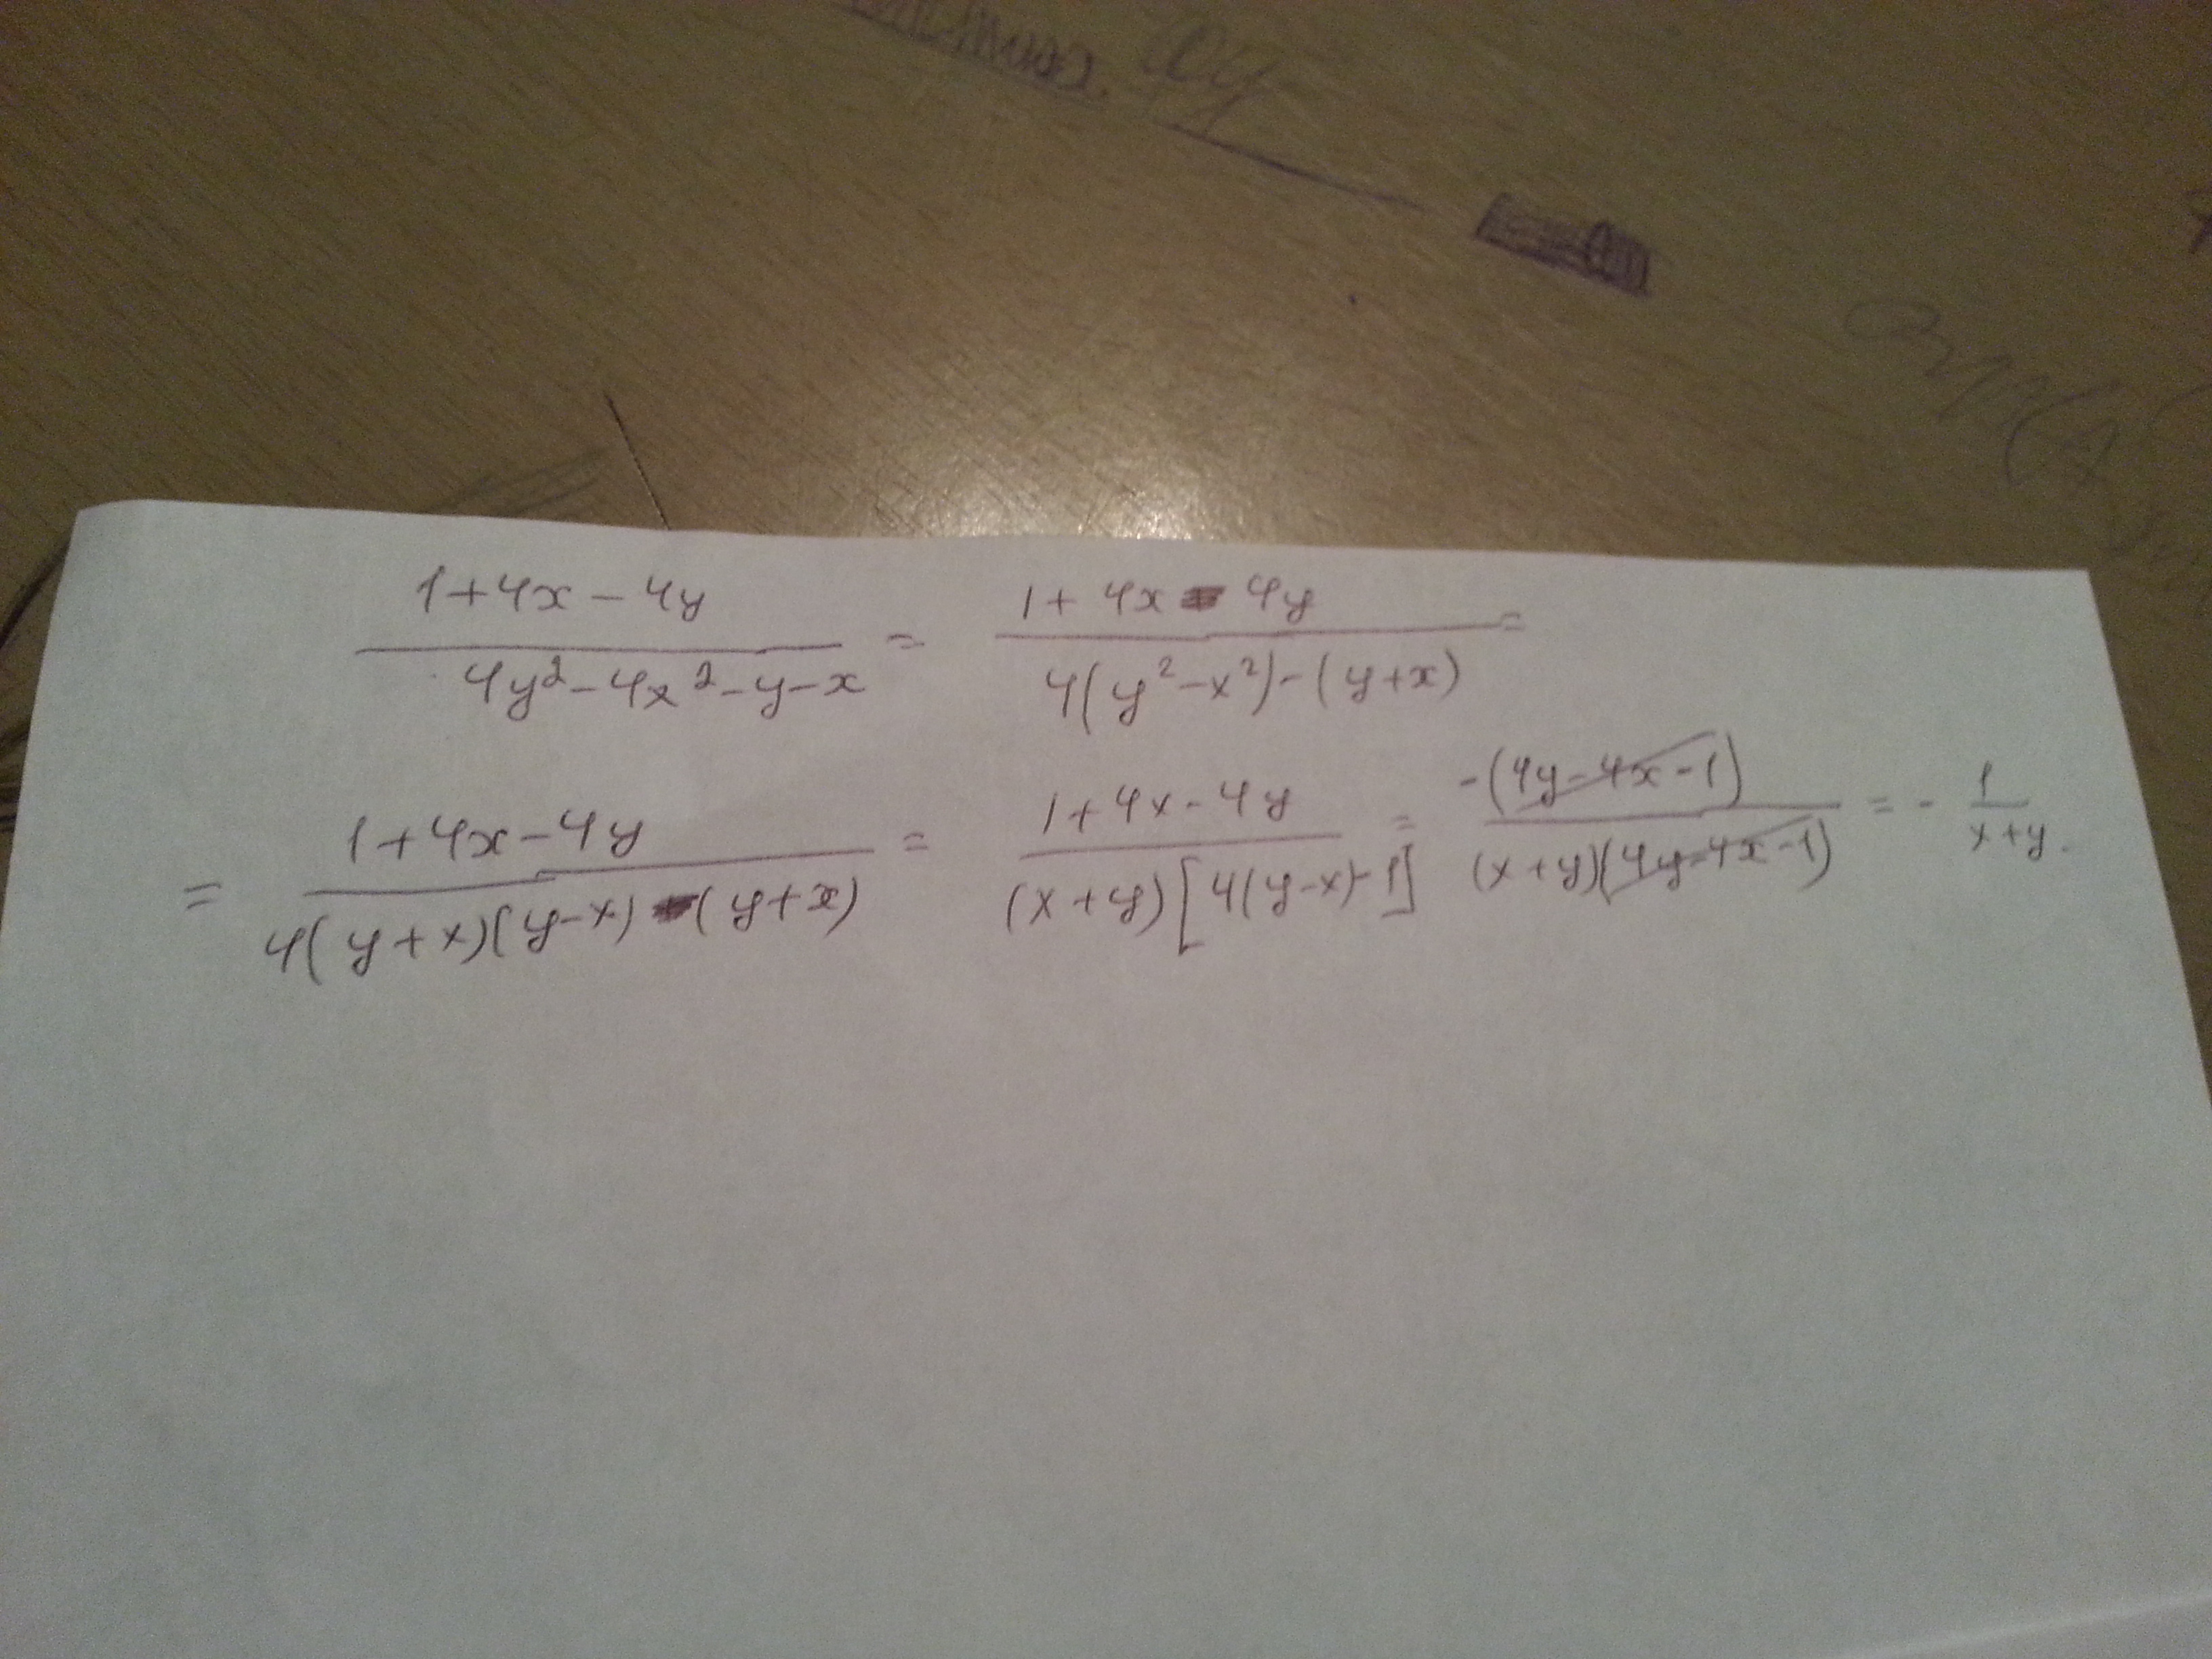 (1+4x-4y)/(4y²-4x²-y-x) = (1+4x-4y)/(4(y²-x²)-(y+x)) =
= (1+4x-4y)/(4(y+x)(y-x)-(y+x)) = (1+4x-4y)/((x+y)[4(y-x)-1]) = -(4y-4x-1)/((x+y)(4y-4x-1)) = - 1/(x+y).